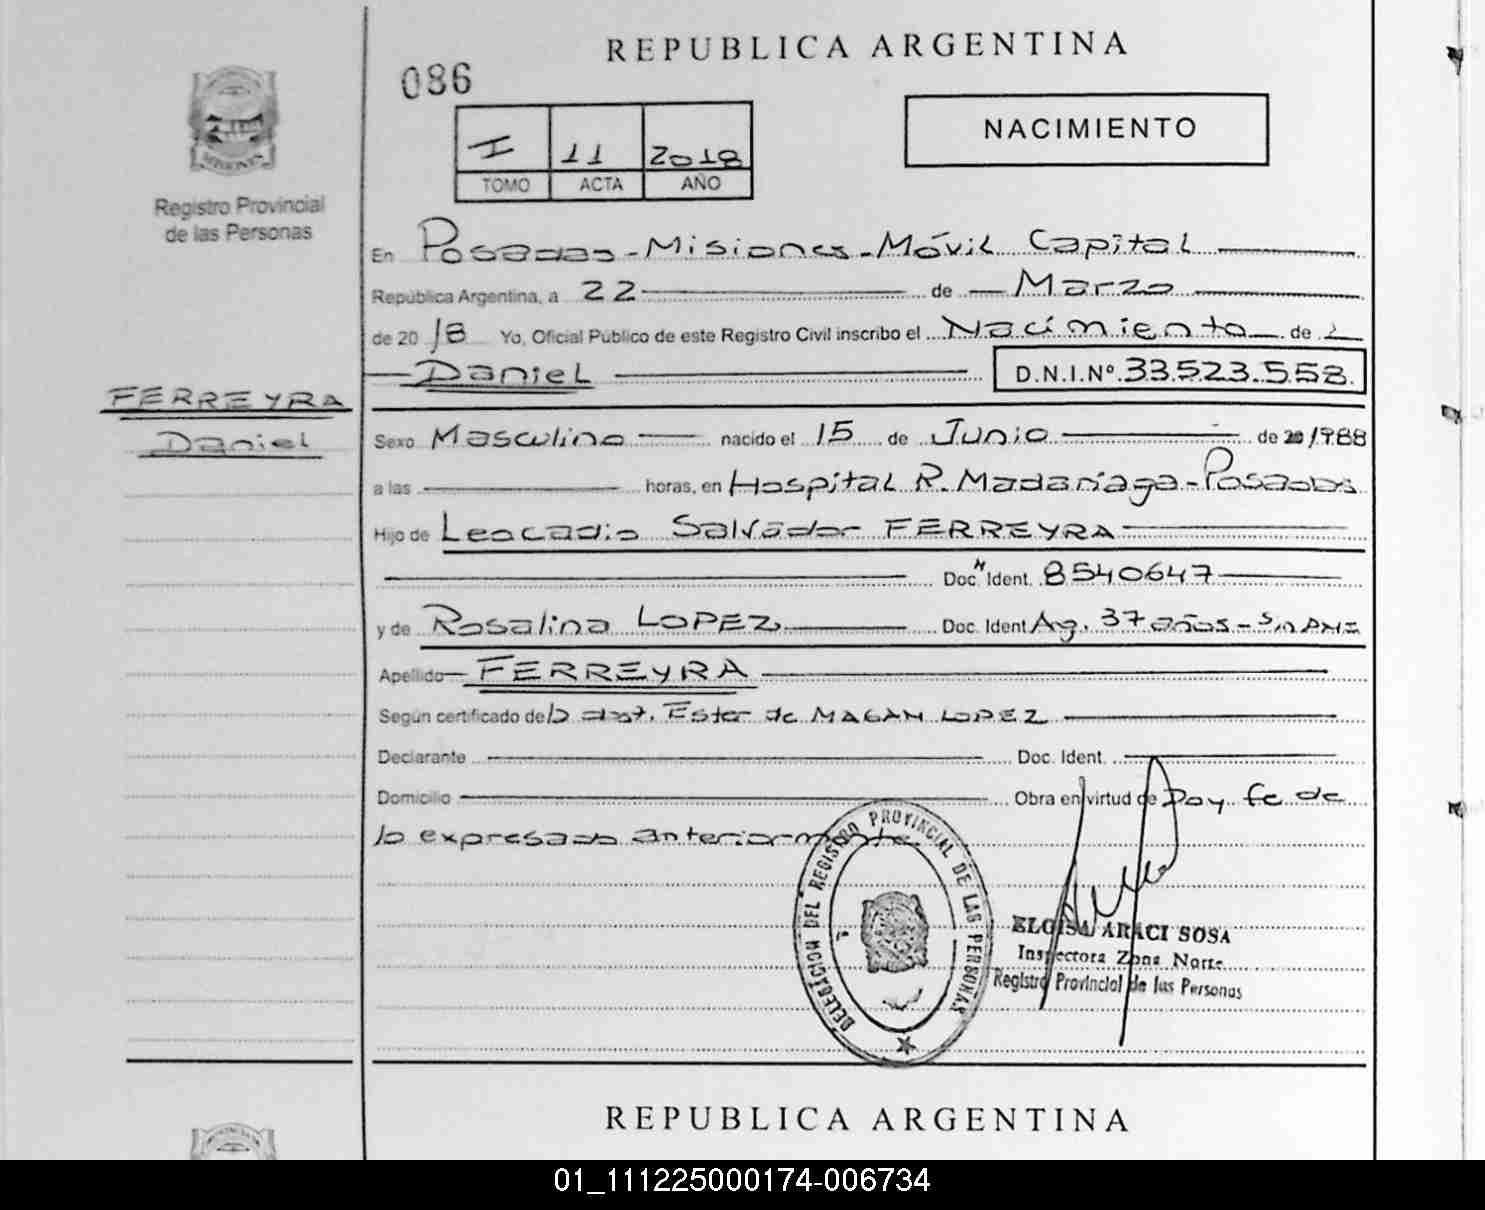 REPUBLICA ARGENTINA
086
NACIMIENTO
I 11 2018
TOMO ACTA AÑO
MISIONES
Registro Provincial
de las Personas
En Posadas - Misiones - Móvil Capital
República Argentina, a 22 de Marzo
de 2018 Yo, Oficial Público de este Registro Civil inscribo el Nacimiento de
Daniel D.N.I.Nº 33.523.558.
FERREYRA
Daniel
Sexo Masculino nacido el 15 de Junio de 1988
a las horas, en Hospital R. Madariaga - Posadas
Hijo de Leocadio Salvador FERREYRA
Doc. Ident. 8540647
y de Rosalina LOPEZ Doc. Ident Ag. 37 años - Sin DNI
Apellido FERREYRA
Según certificado de Ester de MAGAN LOPEZ
Declarante Doc. Ident.
Domicilio Obra en virtud de Doy fe de
lo expresado anteriormente.
DELEGACION DEL REGISTRO PROVINCIAL DE LAS PERSONAS
ELOISA ARACI SOSA
Inspectora Zona Norte
Registro Provincial de las Personas
REPUBLICA ARGENTINA
01_111225000174-006734